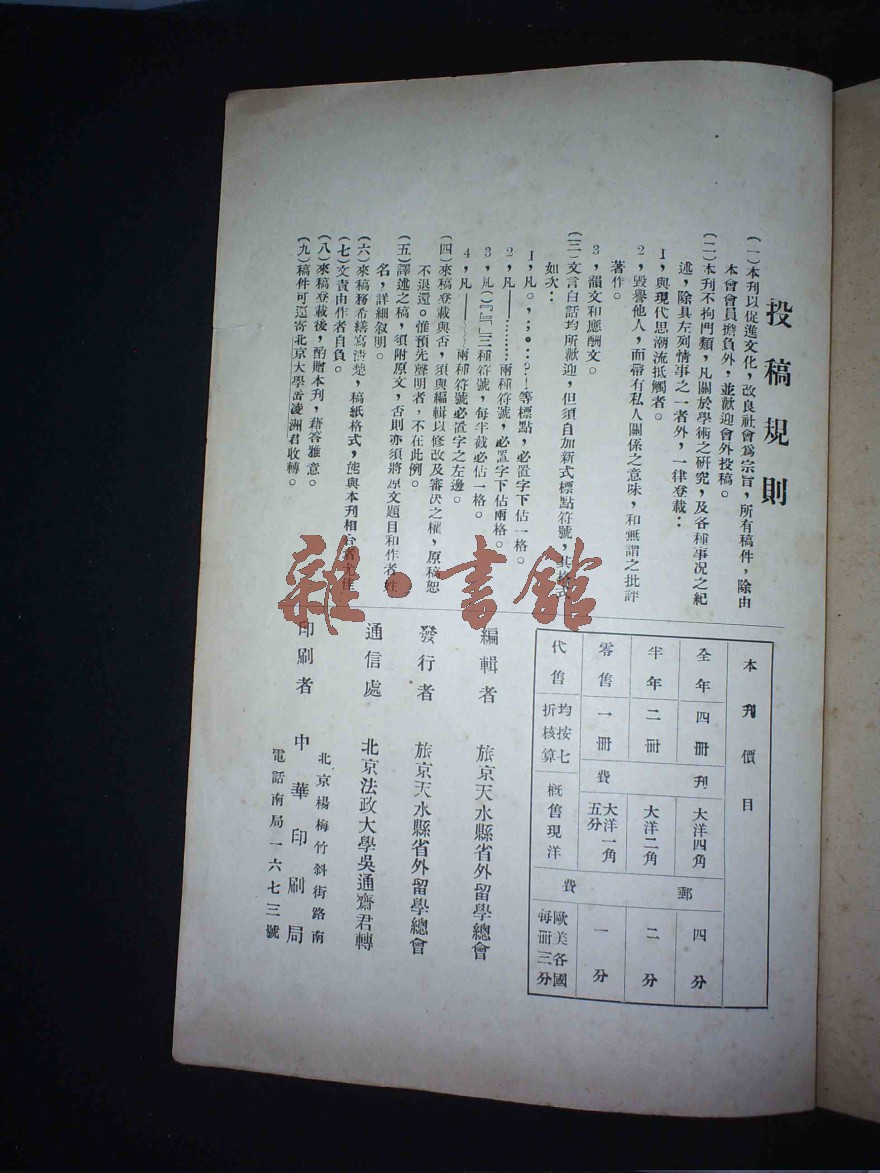 投稿規則
(一)本刊以促進文化，改良社會爲宗旨，所有稿件，除由
本會會員擔負外，並歡迎會外投稿。
(二)本刊不拘門類，凡關於學術之研究，及各種事况之紀
述，除具左列情事之一者外，一律登載：
1，與現代思潮流抵觸者。
2，毀譽他人，而帶有私人關係之意味，和無謂之批評
著作。
3，韻文和應酬文。
(三)文言白話均所歡迎，但須自加新式標點符號，其格式
如次：
1，凡。，；：？！等標點，必置字下佔一格。
2，凡——………兩種符號，必置字下佔兩格。
3，凡()『』「」三種符號，每半截必佔一格。
4，凡——﹏﹏兩種符號必置字之左邊。
(四)來稿登載與否，須與編輯以修改及審決之權，原稿恕
不退還。惟預先聲明者，不在此例。
(五)譯述之稿，須附原文，否則亦須將原文題目和作者姓
名，詳細叙明。
(六)來稿務希繕寫清楚，稿紙格式，能與本刊相合者尤佳
(七)文責由作者自負。
(八)來稿登載後，酌贈本刊，藉答雅意。
(九)稿件可逕寄北京大學 凌洲君收轉。
本刊價目
全年 四冊 刊費 大洋四角 郵費 四分
半年 二冊 大洋二角 二分
零售 一冊 大洋一角五分 一分
代售 均按七折核算 概售現洋 歐美各國每冊三分
編輯者 旅京天水縣省外留學總會
發行者 旅京天水縣省外留學總會
通信處 北京法政大學吳通齋君轉
印刷者 中華印刷局
北京楊梅竹斜街路南
電話南局一六七三號
雜·書館